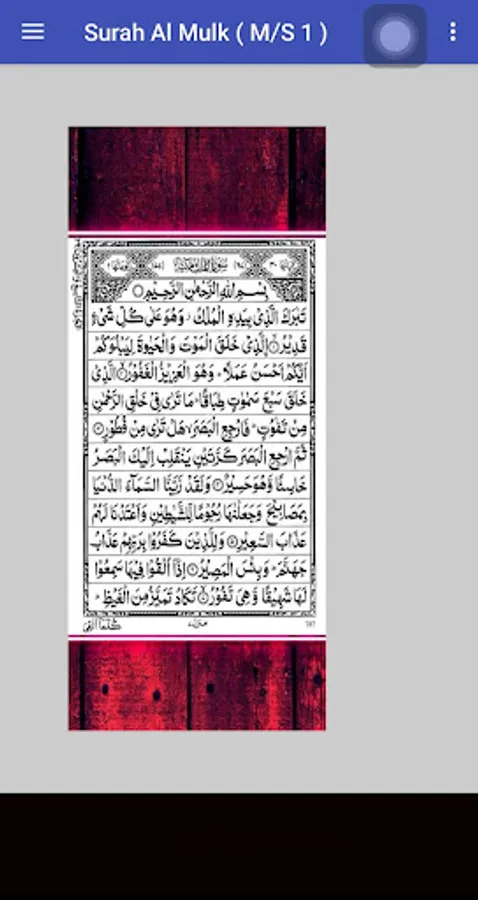 Surah Al Mulk ( M/S 1 )
بِسْمِ اللّٰهِ الرَّحْمٰنِ الرَّحِيْمِ
تَبٰرَكَ الَّذِيْ بِيَدِهِ الْمُلْكُ وَهُوَ عَلٰى كُلِّ شَيْءٍ
قَدِيْرُ ۙ الَّذِيْ خَلَقَ الْمَوْتَ وَالْحَيٰوةَ لِيَبْلُوَكُمْ
اَيُّكُمْ اَحْسَنُ عَمَلًا ؕ وَهُوَ الْعَزِيْزُ الْغَفُوْرُ ۙ الَّذِيْ
خَلَقَ سَبْعَ سَمٰوٰتٍ طِبَاقًا ؕ مَا تَرٰى فِيْ خَلْقِ الرَّحْمٰنِ
مِنْ تَفٰوُتٍ ؕ فَارْجِعِ الْبَصَرَ ۙ هَلْ تَرٰى مِنْ فُطُوْرٍ
ثُمَّ ارْجِعِ الْبَصَرَ كَرَّتَيْنِ يَنْقَلِبْ اِلَيْكَ الْبَصَرُ
خَاسِئًا وَّهُوَ حَسِيْرٌ وَلَقَدْ زَيَّنَّا السَّمَآءَ الدُّنْيَا
بِمَصَابِيْحَ وَجَعَلْنٰهَا رُجُوْمًا لِّلشَّيٰطِيْنِ وَاَعْتَدْنَا لَهُمْ
عَذَابَ السَّعِيْرِ وَلِلَّذِيْنَ كَفَرُوْا بِرَبِّهِمْ عَذَابُ
جَهَنَّمَ ؕ وَبِئْسَ الْمَصِيْرُ اِذَآ اُلْقُوْا فِيْهَا سَمِعُوْا
لَهَا شَهِيْقًا وَّهِيَ تَفُوْرُ ۙ تَكَادُ تَمَيَّزُ مِنَ الْغَيْظِ ؕ
كُلَّمَآ اُلْقِيَ